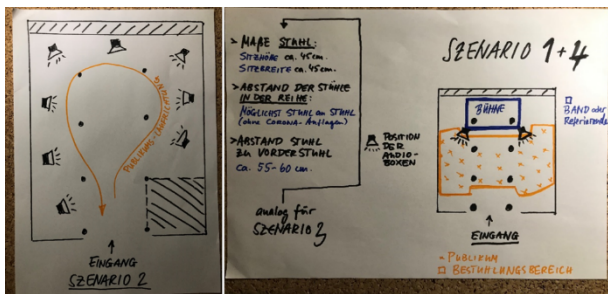 PUBLIKUM-LAUFRICHTUNG
EINGANG
SZENARIO 2
> MAßE STUHL:
SITZHÖHE ca. 45cm.
SITZBREITE ca. 45cm.
> ABSTAND DER STÜHLE
IN DER REIHE:
MÖGLICHST STUHL an STUHL
(ohne CORONA-Auflagen)
> ABSTAND STUHL
ZU VORDERSTUHL
ca. 55-60 cm.
analog für
SZENARIO 3
POSITION
DER
AUDIO-
BOXEN
SZENARIO 1+4
BÜHNE
BAND oder
Referierende
EINGANG
PUBLIKUM
BESTUHLUNGSBEREICH